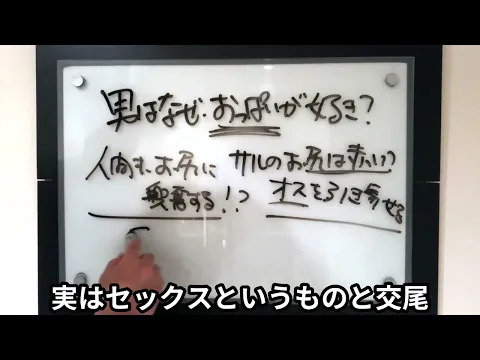 男はなぜ、おっぱいが好き?
人間も、お尻に サルのお尻は赤い
興奮する!? オスをひき寄せる
実はセックスというものと交尾